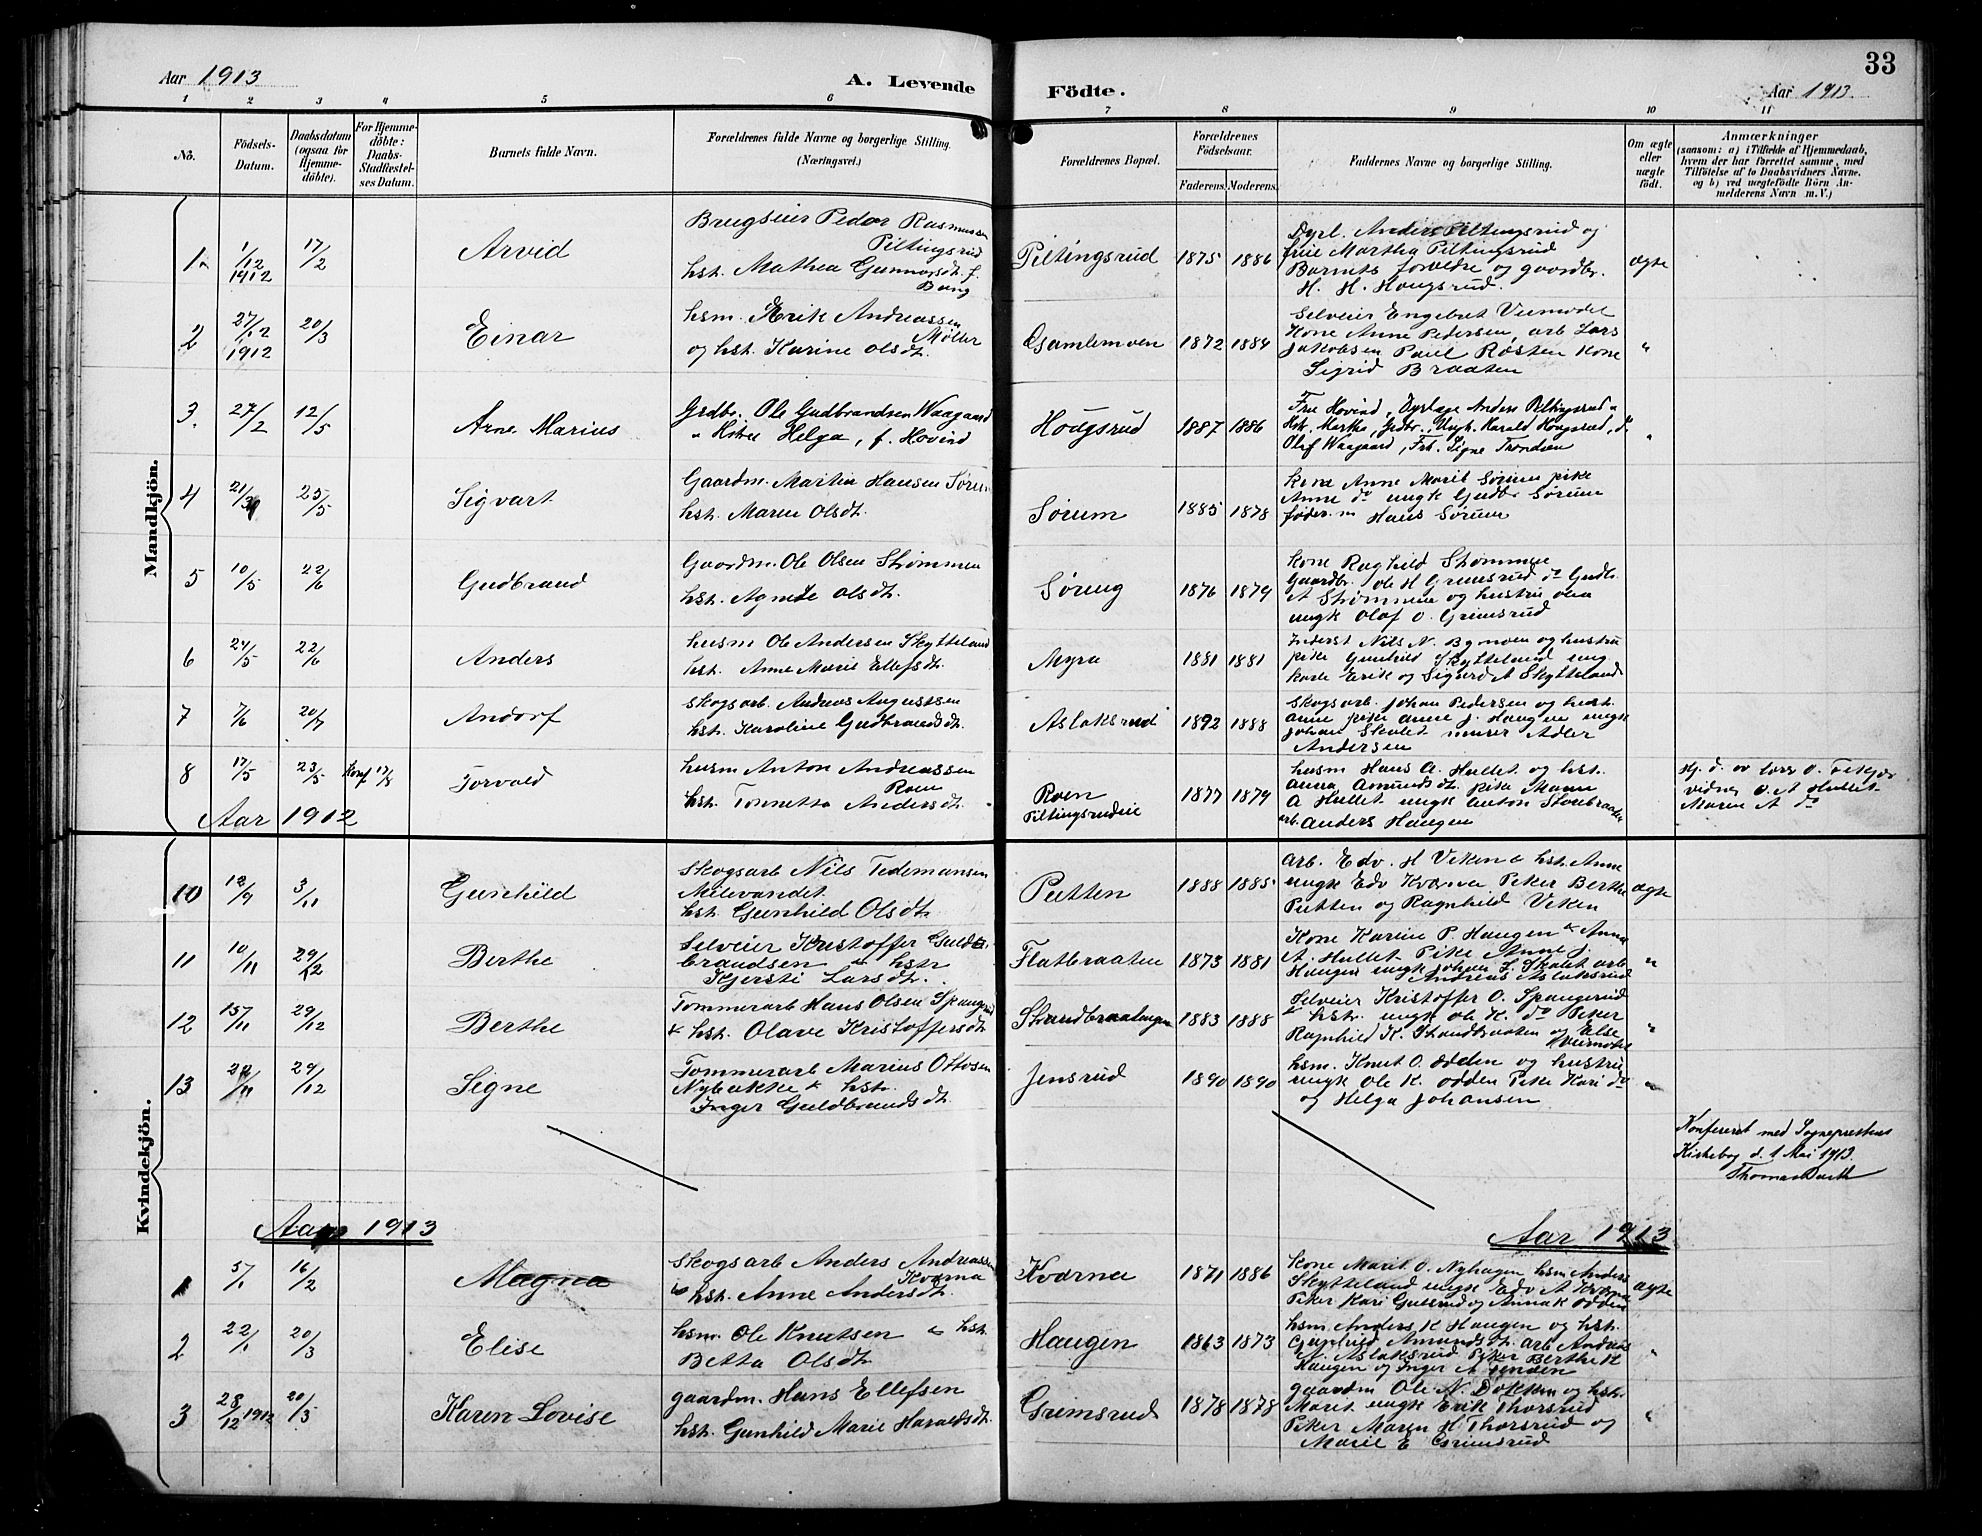 33
Aar 1913 A. Levende Födte. Aar 1913
1 2 3 4 5 6 7 8 9 10 11
No.
Födsels-
Datum.
Daabsdatum
(ogsaa for
Hjemme-
döbte).
For Hjemme-
döbte:
Daabs-
Stadfæstel-
ses Datum.
Barnets fulde Navn.
Forældrenes fulde Navne og borgerlige Stilling.
(Næringsvei.)
Forældrenes Bopæl.
Forældrenes
Födselsaar.
Faderens. Moderens.
Faddernes Navne og borgerlige Stilling.
Om ægte
eller
uægte
födt.
Anmærkninger
(saasom: a) i Tilfælde af Hjemmedaab,
hvem der har forrettet samme, med
Tilföielse af to Daabsvidners Navne.
og b) ved uægtefödte Börn An-
melderens Navn m. V.)
Mandkjön.
1. 1/12 1912 17/2 Arvid
Brugseier Peder Rasmussen
Piltingsrud
hst. Mathea Gunnarsdt. f.
Bang
Piltingsrud 1875 1886
Dyrl. Anders Piltingsrud og
frue Martha Piltingsrud
Barnets forældre og gaardbr.
H. H. Hougsrud.
ægte
2 27/12 1912 20/3 Einar
hsm. Erik Andreassen
Møller
og hst. Karine Olsdt.
Gamlemoen 1872 1884
Selveier Engebret Veimodet
Kone Anne Pedersen, arb Lars
Jakobsen Paul Røsten Kone
Sigrid Braaten
"
3. 27/2 12/5 Arne Marius
Grdbr. Ole Gudbrandsen Waagaard
" Hstru Helga, f. Hovind
Hougsrud 1887 1886
Frue Hovind, Dyrlæge Anders Piltingsrud "
Hst. Martha, Grdbr., Ungk. Harald Hougsrud, d.
Olaf Waagaard, Frk. Signe Trondsen
"
4 21/3 25/5 Sigvart
Gaardm. Martin Hansen Sørum
hst. Maren Olsdt.
Sørum 1885 1878
Kone Anne Marit Sørum pike
Anne do ungk Gudbr Sørum
føder.m Hans Sørum
5 10/5 22/6 Gudbrand
Gaardm. Ole Olsen Strømmen
hst. Agnete Olsdt.
Søreng 1876 1879
Kone Raghild Strømmen
Gaardbr. Ole H Grimsrud do Gudb.
A Strømmen og hustru Olea
ungk Olaf O. Grimsrud
6 24/5 22/6 Anders
husm Ole Andersen Skytteland
hst. Anne Marie Ellefsdt.
Myra 1881 1881
Inderst Nils N. Bymoen og hustru
pike Gunhild Skytteland ung
karle Erik og Sigurd A Skytteland
7 7/6 20/7 Andorf
Skogsarb. Andreas Augustsen
hst. Karoline Gudbrandsdt.
Aslaksrud 1892 1888
Skogsarb. Johan Pedersen og hust.
Anne pike Anne J. Haugen ungk
Johan Skalet murer Adler
Andersen
8 17/5 23/5 Konf 17/8 Torvald
husm Anton Andreassen
Roen
hst. Tonnetta Andersdt.
Roen
Piltingsrudeie 1877 1879
husm Hans A. Hullet og hst.
Anna Amundsdt. pike Maren
A Hullet ungk Anton Stuebraaten
arb. Anders Haugen
Hj. d. av Lars O. Tekjær
vidner O. A Hullet
Maren A do
Aar 1912
Kvindekjön.
10 12/9 3/11 Gunhild
Skogsarb Nils Tidemansen
Milevandet
hst. Gunhild Olsdt.
Putten 1888 1885
Arb. Edv. H Veken & hst. Anne
ungk Edv Kværna Piker Berthe
Putten og Ragnhild Veken
ægte
11 10/11 29/12 Berthe
Selveier Kristoffer Guld-
brandsen & hst
Kjersti Larsdt.
Flatbraaten 1873 1881
Kone Karine P. Haugen & Anna
A. Hullet Pike Anne J.
Haugen ungk Johan J. Skalet arb
Andreas Aslaksrud
"
12 15/11 29/12 Berthe
Tømmerarb Hans Olsen Spangerud
& hst. Olave Kristoffersdt.
Strandbraatengen 1883 1888
Selveier Kristoffer O. Spangerud
& hst. ungk Ole K. do Piker
Ragnhild K. Strandbraaten og Else
Veimodet
"
13 29/12 Signe
Tømmerarb Marius Ottosen
Nybakke & hst.
Inger Guldbrandsdt.
Jensrud 1890 1890
hsm. Knut O. Odden og hustru
ungk Ole K. Odden Pike Kari do
og Helga Johansen
"
Konfereret med Sogneprestens
Kirkebog d. 1 Mai 1913.
Thomas Barth
Aar 1913 Aar 1913
1 5/1 16/2 Magna
Skogsarb Anders Andreassen
Kværna
& hst. Anne Andersdt.
Kværna 1871 1886
Kone Marit O. Nyhagen hsm Anders
Skytteland ungk Edv A Kværna
Piker Kari Gulsrud og Anna K Odden
ægte
2 22/1 20/3 Elise
hsm. Ole Knutsen & hst.
Betta Olsdt.
Haugen 1863 1873
hsm. Anders K Haugen og hst.
Gunhild Amundsdt. arb Andreas
N. Aslaksrud Piker Berthe K
Haugen og Inger A Jenden
"
3 28/12 1912 20/3 Karen Lovise
gaardm. Hans Ellefsen
hst. Gunhild Marie Haraldsdt.
Grimsrud 1878 1878
gaardm Ole N. Dokken og hst.
Marit ungk Erik Thorsrud
Piker Maren H Thorsrud og
Marie E Grimsrud
"